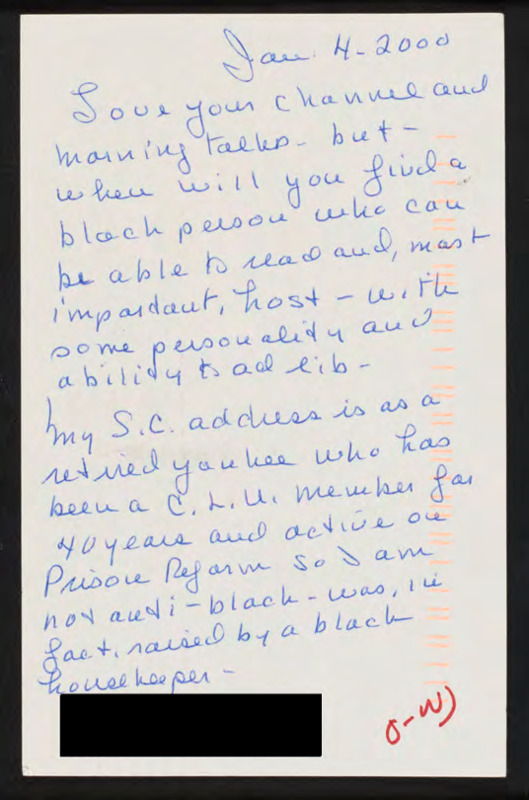 Jan. 4-2000
Love your channel and
morning talks - but -
when will you find a
black person who can
be able to read and, most
important, host - with
some personality and
ability to ad lib -
My S.C. address is as a
retired yankee who has
been a C.L.U. member for
40 years and active on
Prison Reform so I am
not anti-black - was, in
fact, raised by a black
housekeeper -
O-W)